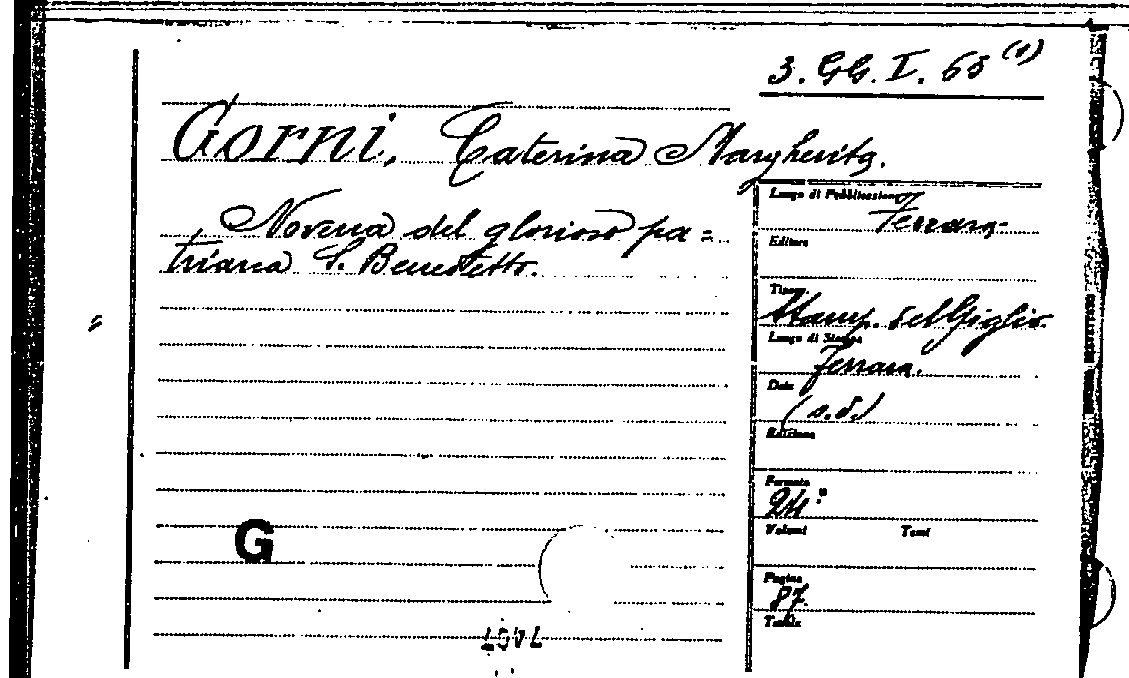 3. GG. I. 63 (1)
Gorni, Caterina Margherita.
Novena del glorioso pa=
triarca S. Benedetto.
Luogo di Pubblicazione
Ferrara
Editore
Tipogr.
Stamp. del Giglio.
Luogo di Stampa
Ferrara.
Data
(s.d.)
Edizione
Formato
24°
Volumi Tomi
Pagine
87.
Tavole
G